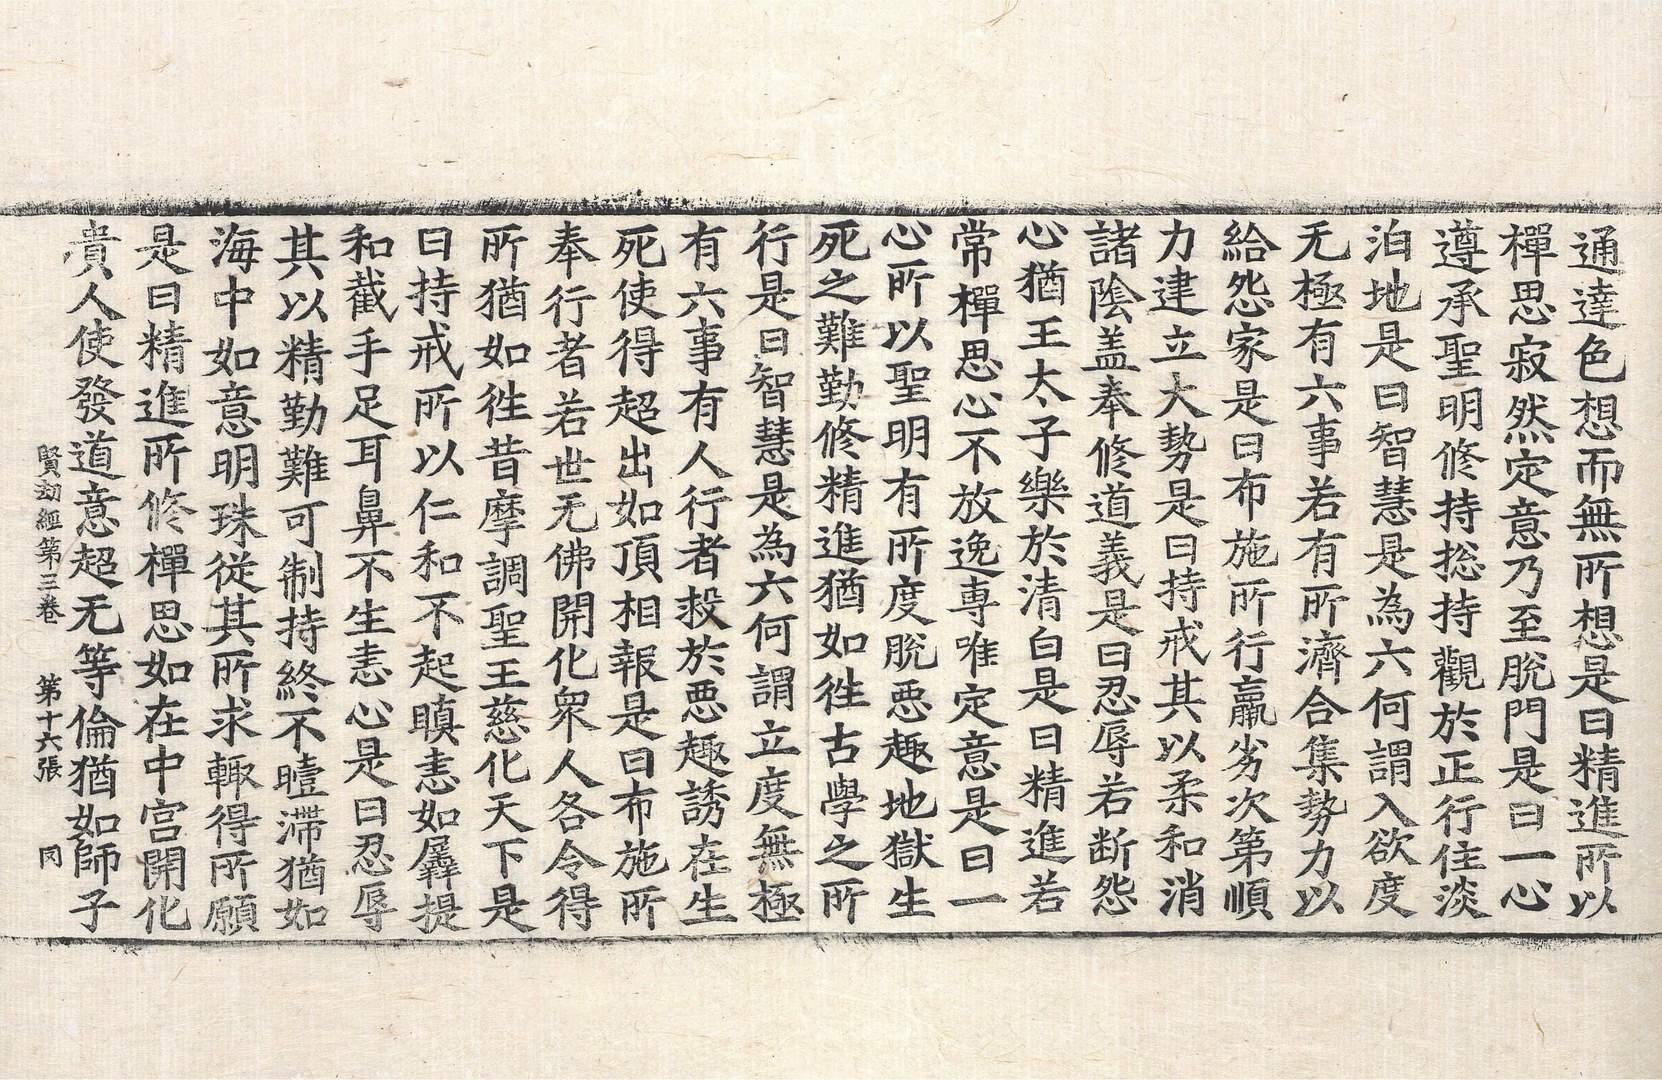 通達色想而無所想是曰精進所以
禪思寂然定意乃至脫門是曰一心
遵承聖明修持捴持觀於正行住淡
泊地是曰智慧是為六何謂入欲度
无極有六事若有所濟合集勢力以
給怨家是曰布施所行羸劣次第順
力建立大勢是曰持戒其以柔和消
諸陰盖奉修道義是曰忍辱若断怨
心猶王太子樂於清白是曰精進若
常禪思心不放逸專唯定意是曰一
心所以聖明有所度脫悪趣地獄生
死之難勤修精進猶如徃古學之所
行是曰智慧是為六何謂立度無極
有六事有人行者救於悪趣誘在生
死使得超出如頂相報是曰布施所
奉行者若世无佛開化衆人各令得
所猶如徃昔摩調聖王慈化天下是
曰持戒所以仁和不起瞋恚如羼提
和截手足耳鼻不生恚心是曰忍辱
其以精勤難可制持終不曀滯猶如
海中如意明珠從其所求輙得所願
是曰精進所修禪思如在中宮開化
貴人使發道意超无等倫猶如師子
賢劫經第三卷 第十六張 同